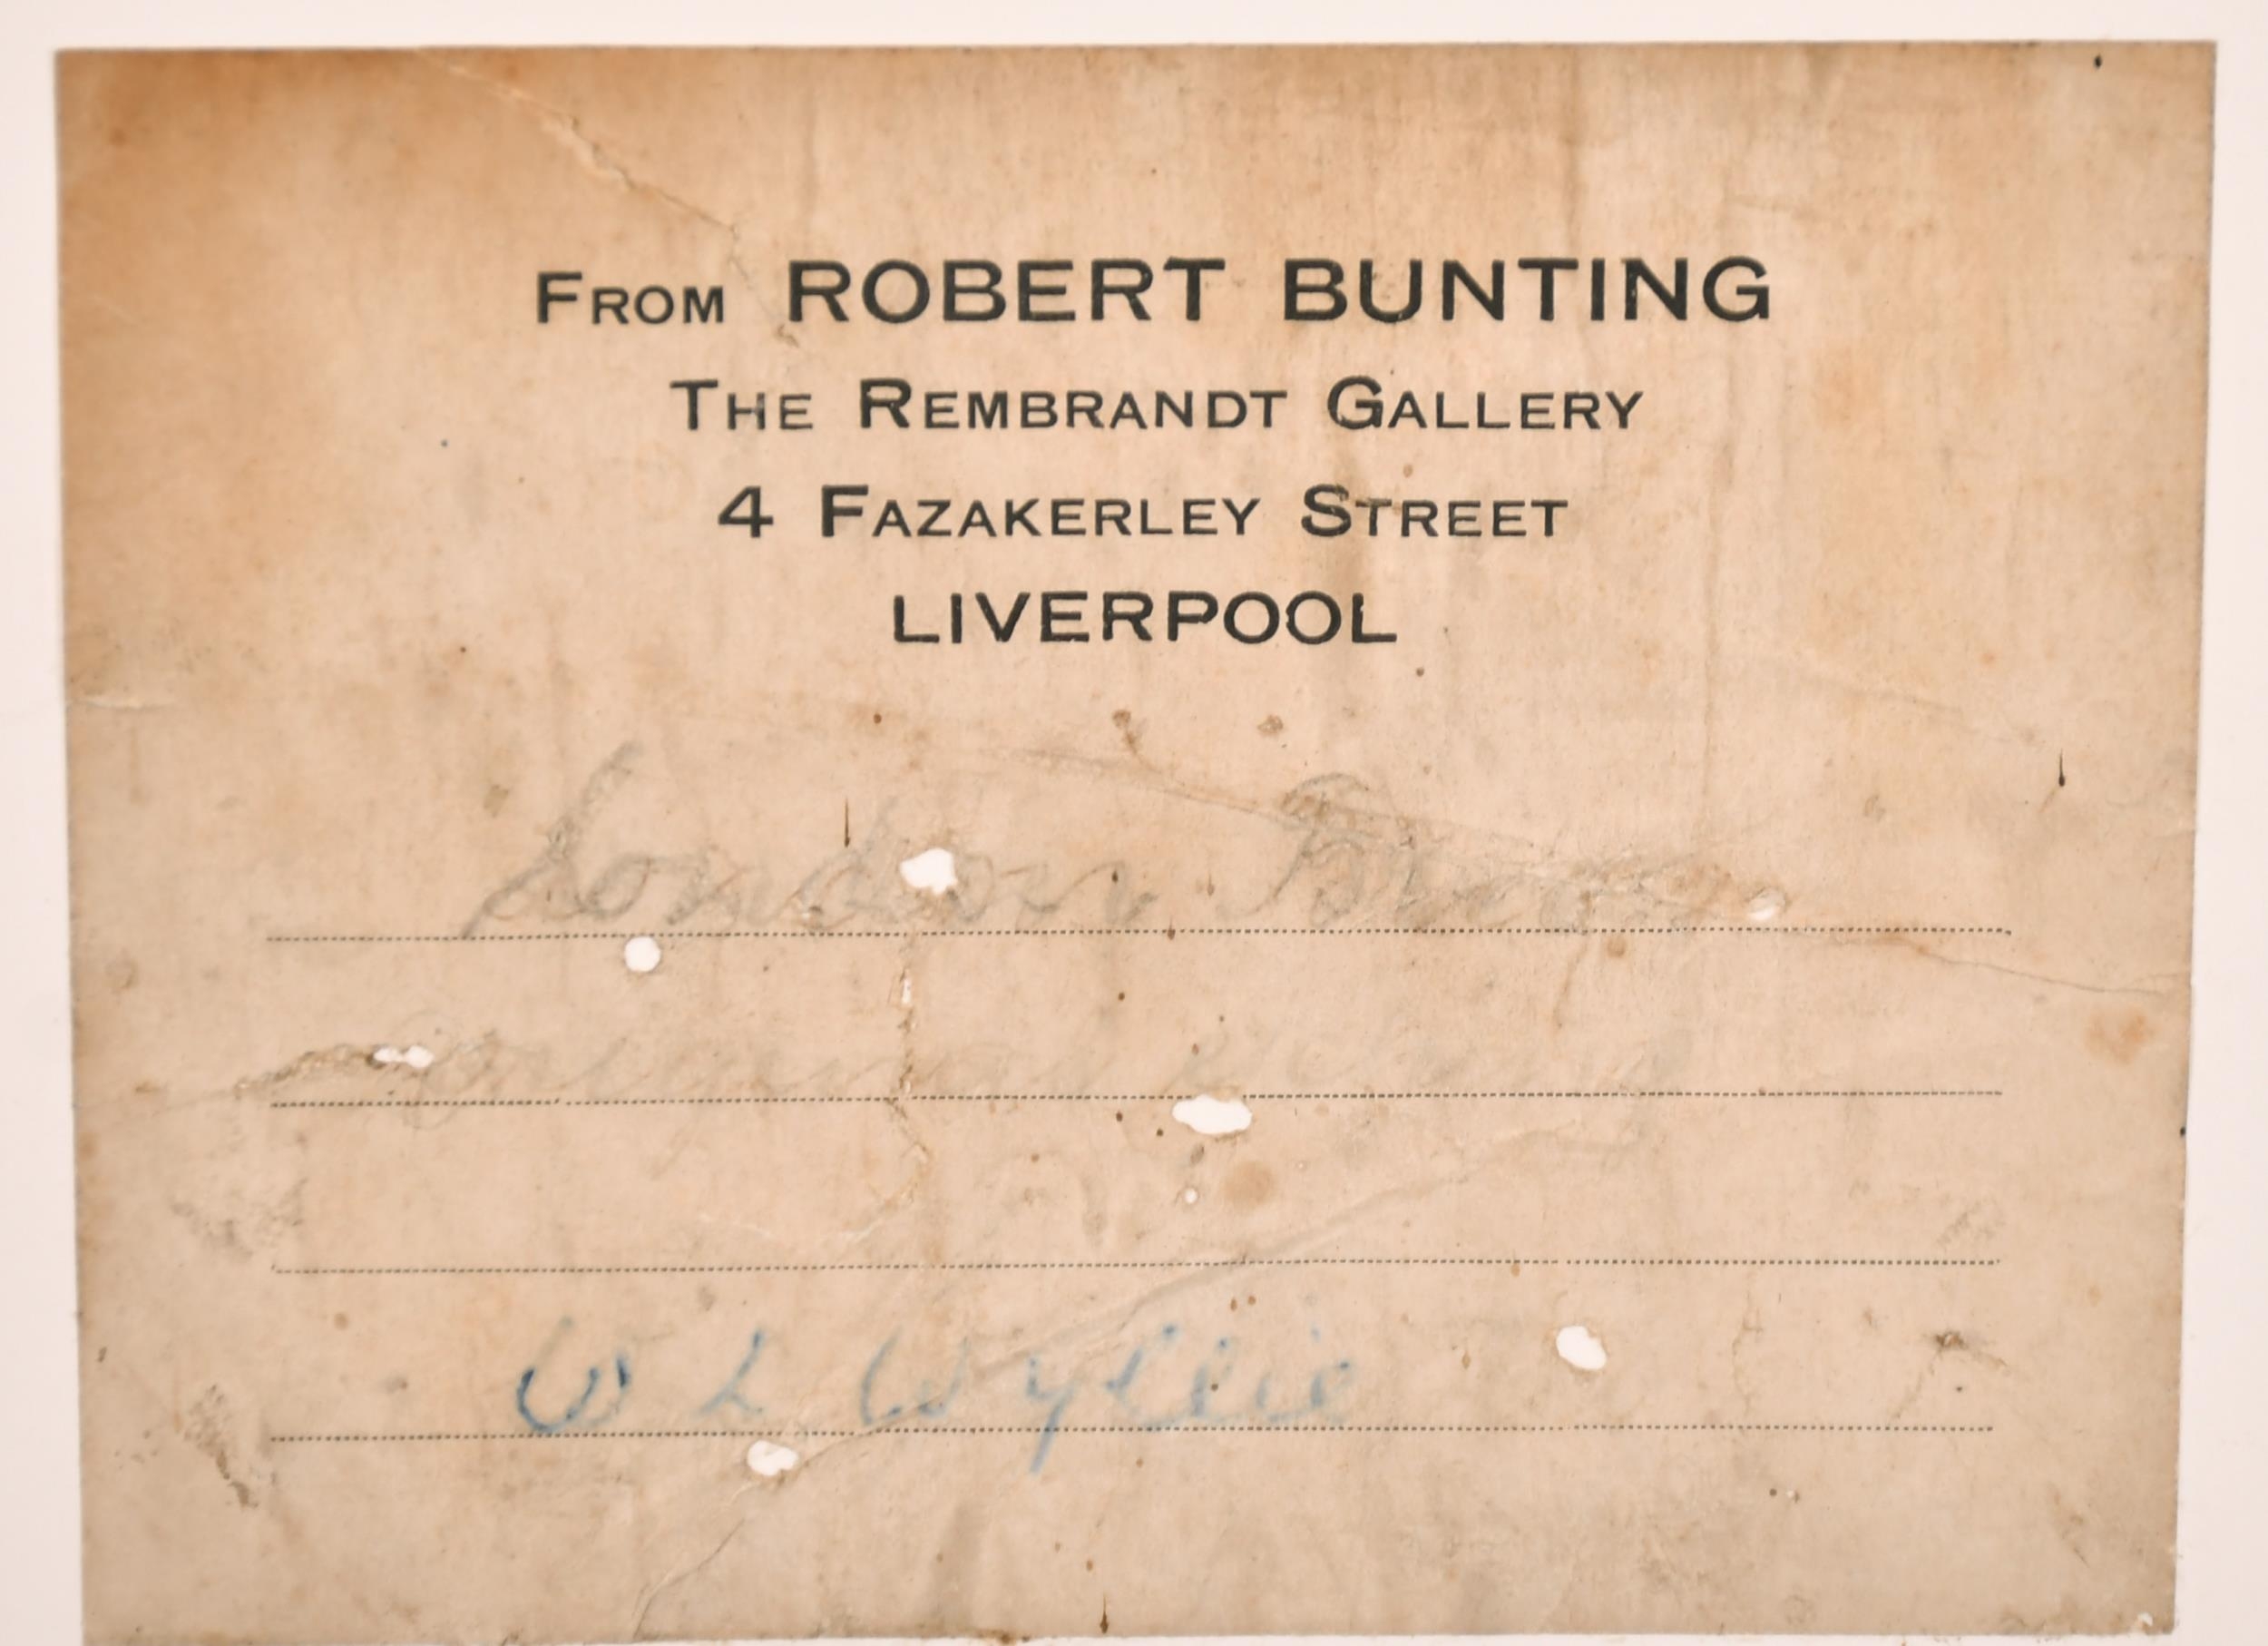 FROM ROBERT BUNTING
THE REMBRANDT GALLERY
4 FAZAKERLEY STREET
LIVERPOOL
London
original
W L Wyllie